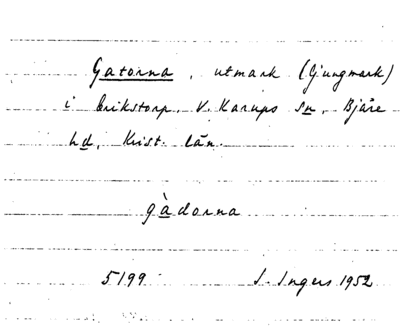 Gatorna, utmark (ljungmark)
i Erikstorp, V. Karups sn, Bjäre
hd, Krist. län.
gàdorna
5199 I. Ingers 1952